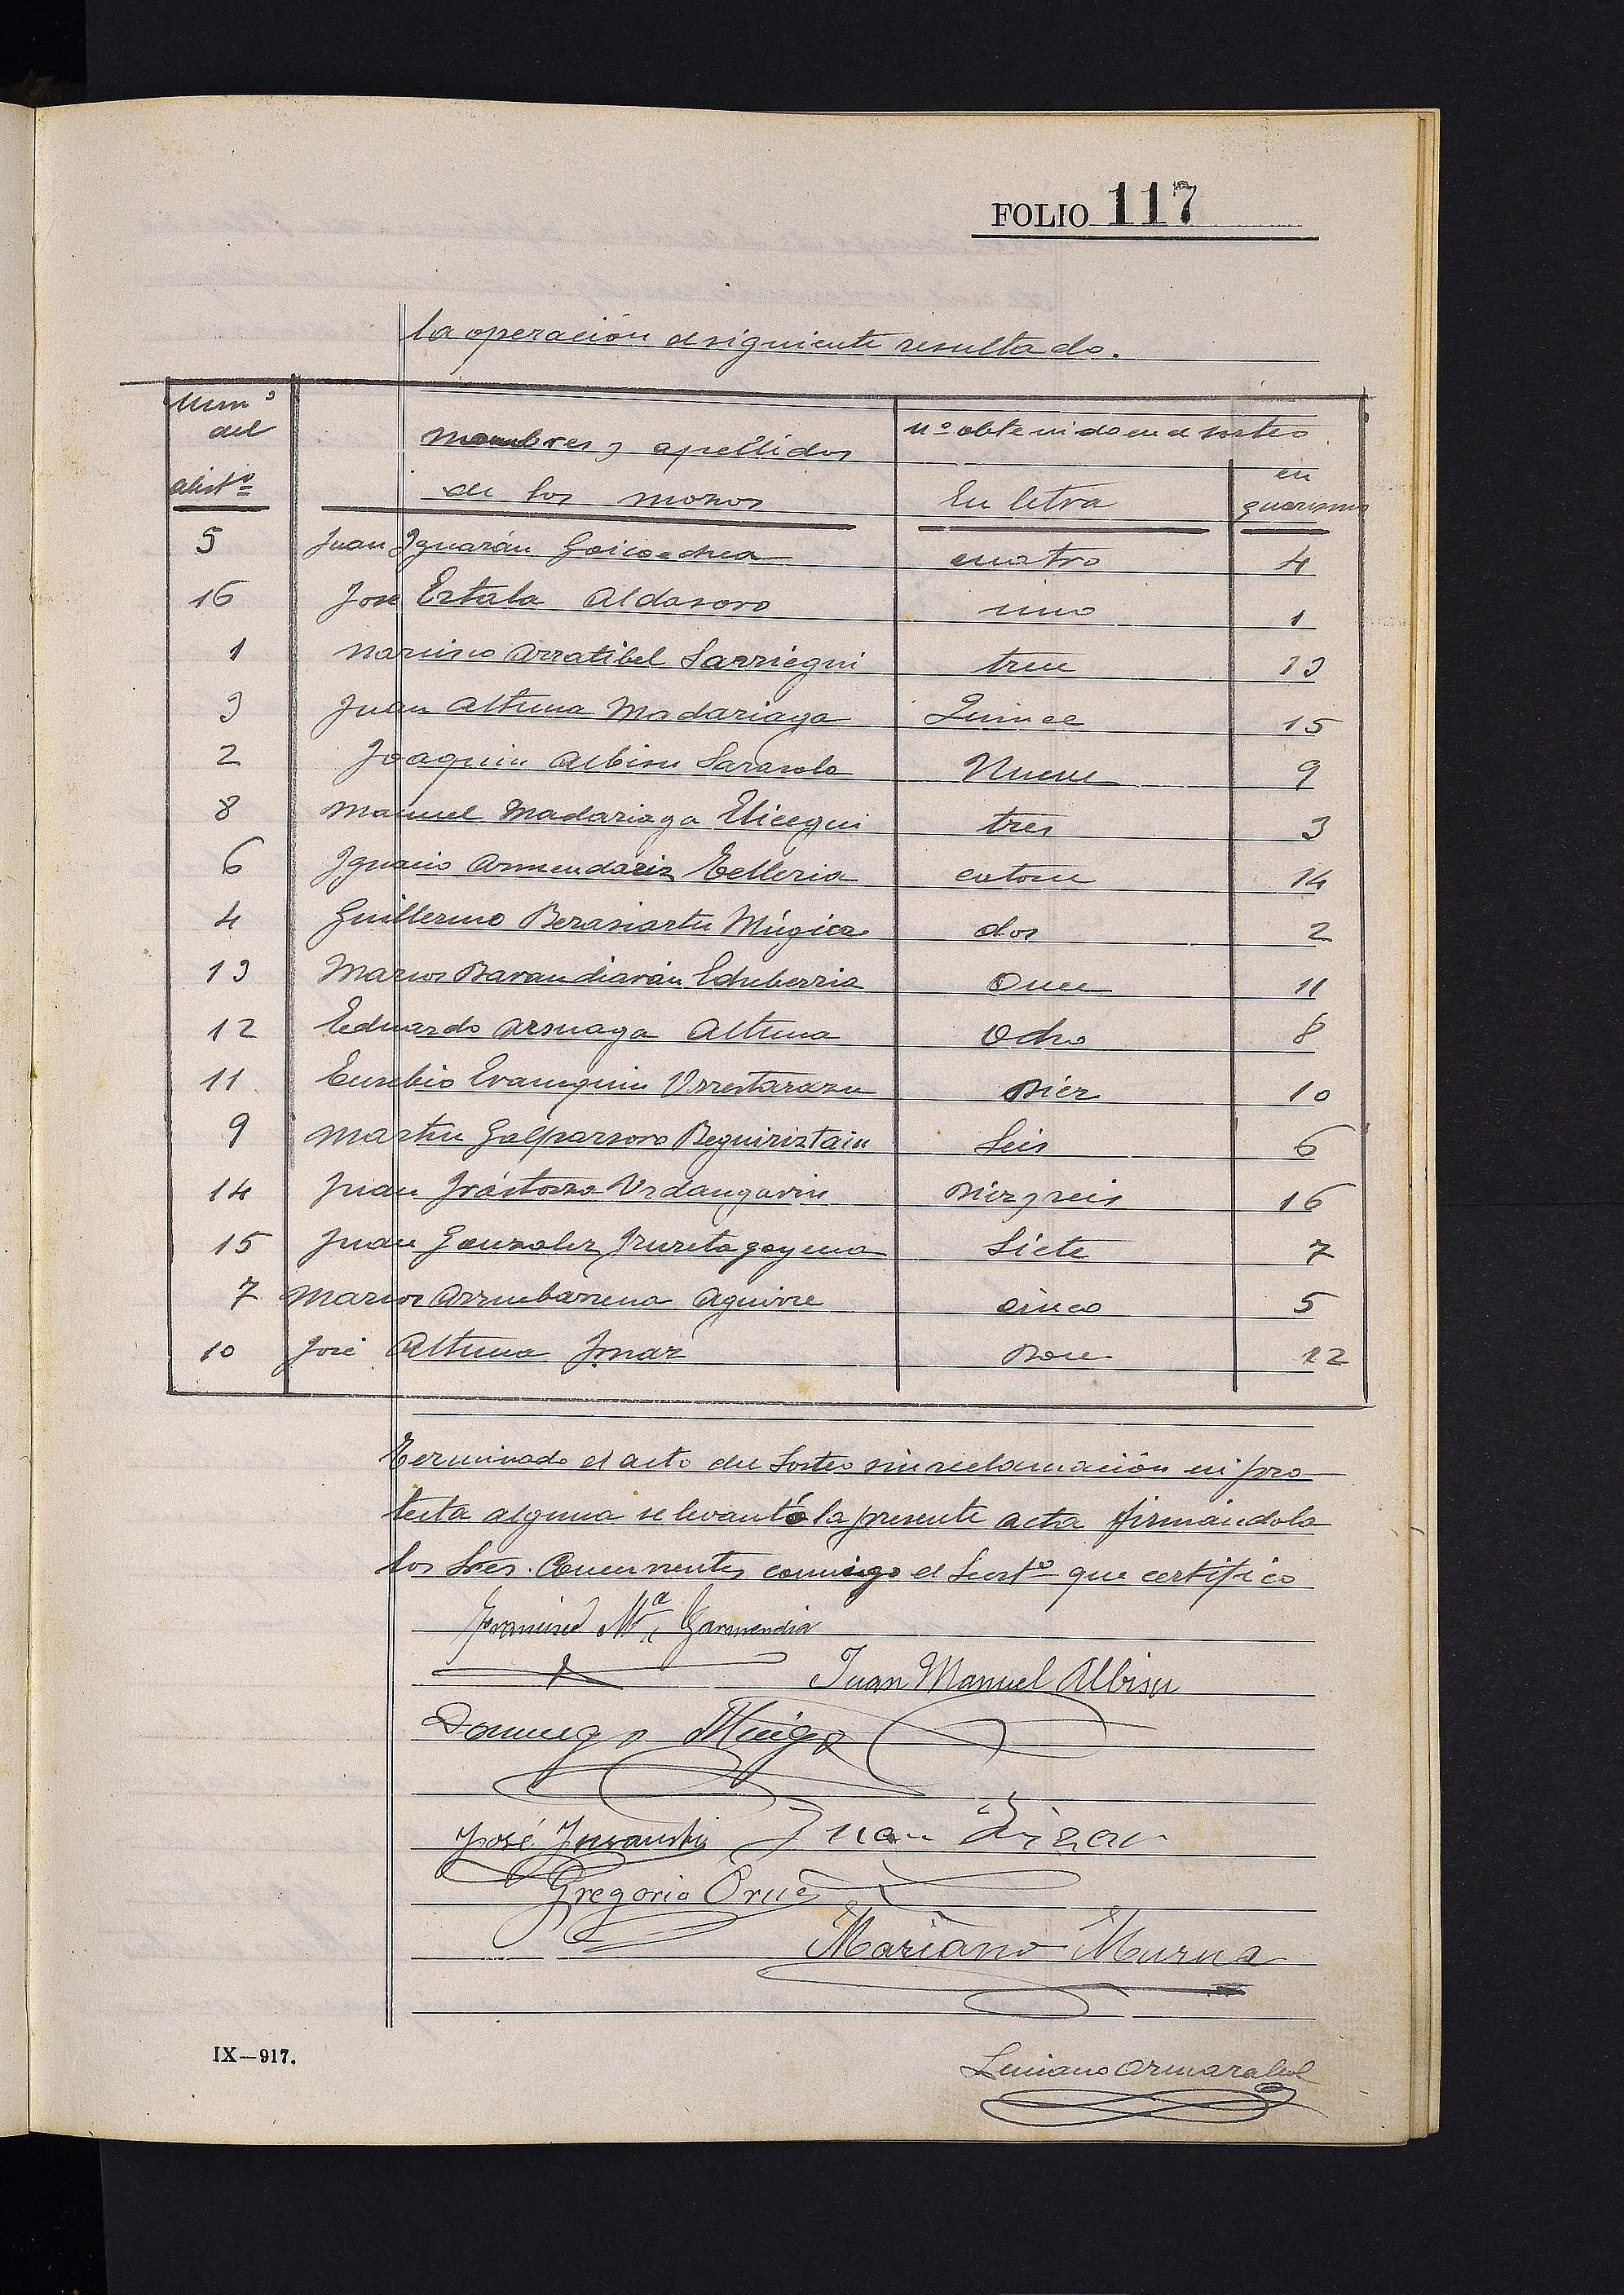 FOLIO 117
la operación el siguiente resultado.
Num.º del alistº
Nombres y apellidos de los mozos
nº obtenido en el sorteo
En letra
en guarismo
5 Juan Iguarán Goicoechea cuatro 4
16 José Estala Aldasoro uno 1
1 Narciso Arratibel Sarriegui trece 13
3 Juan Altuna Madariaga Quince 15
2 Joaquin Albisu Sarasola Nueve 9
8 Manuel Madariaga Elicegui tres 3
6 Ignacio Armendariz Telleria catorce 14
4 Guillermo Berasiartu Múgica dos 2
13 Marcos Barandiarán Echeberria Once 11
12 Eduardo Arsuaga Altuna Ocho 8
11 Eusebio Urrestarazu Diez 10
9 Martin Galparsoro Beguiristain Seis 6
14 Juan Irástorza Urdangarin Diez y seis 16
15 Juan Gonzalez Iruretagoyena Siete 7
7 Marcos Arrubarrena Aguirre cinco 5
10 José Altuna Imaz Doce 12
Terminado el acto del Sorteo sin reclamación ni pro
testa alguna se levantó la presente acta firmándola
los Sres. Concurrentes conmigo el Secrtº que certifico
Francisco Mª Garmendia
Juan Manuel Albisu
Domingo Mugica
José Juan
Gregorio Orue
Mariano Murua
Luciano
IX—917.